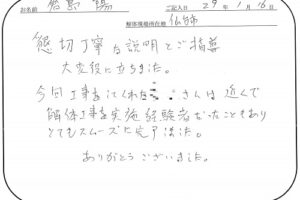 お名前 飯島 陽 ご記入日 29年1月16日
解体現場所在地 仙台市
懇切丁寧な説明とご指導
大変役に立ちました。
今回工事をしてくれた さんは近くで
解体工事を実施 経験者だったこともあり
とてもスムーズに完了した。
ありがとうございました。